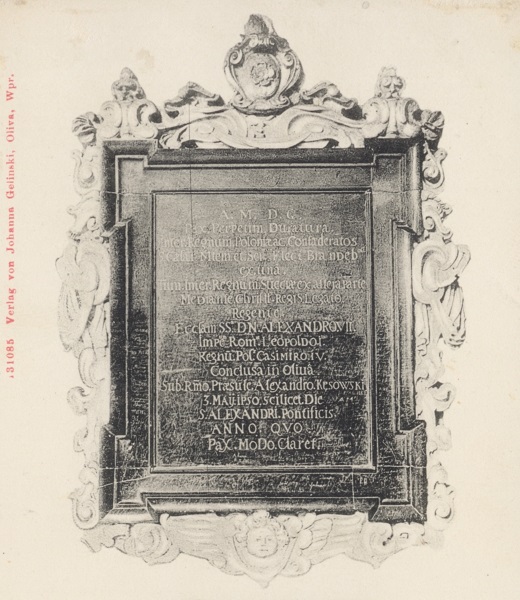 31085 Verlag von Johanna Gelinski, Oliva, Wpr.
A. M. D. G.
Pax Perpetim Duratura
Inter Regnum Poloniæ ac Confœderatos
et Brandeb
Regni Sueciæ ex altera parte
Mediante Christ. Regis Legato
Ecclam SS. D.N. ALEXANDRO VII.
Impe. Rom. Leopoldo I.
Regnu. Pol. Casimiro IV.
Conclusa in Oliva
Sub Rmo. Præsule Alexandro Kęsowski
3. Maij ipso scilicet Die
S. ALEXANDRI Pontificis
ANNO QVO
PaX. MoDo. Claret.